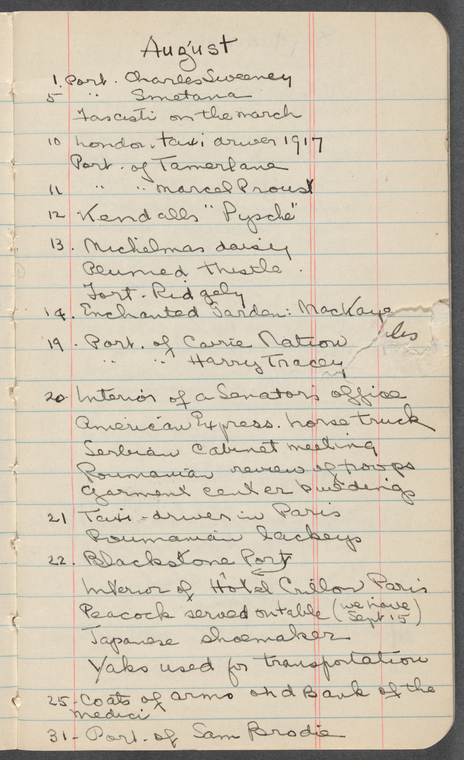 August
1. Port. Charles Sweeney
5 " Smetana
Fascisti on the march
10 London. taxi driver 1917
Port. of Tamerlane
11 " " Marcel Proust
12. Kendalls "Pysche"
13. Michelmas daisy
Plumed thistle.
Fort. Ridgely
14. Enchanted Garden: MacKaye
19. Port. of Carrie Nation
" " Harry Tracey
20 Interior of a Senators office
American Express. horse truck
Serbian Cabinet meeting
Roumanian review of troops
Garment center buildings
21 Taxi-driver in Paris
Roumanian lackeys
22. Blackstone Port
Interior of Hotel Crillon Paris
Peacock served on table (we have Sept 15)
Japanese shoemaker
Yaks used for transportation
25. Coats of arms old Bank of the
Medici
31- Port. of Sam Brodie